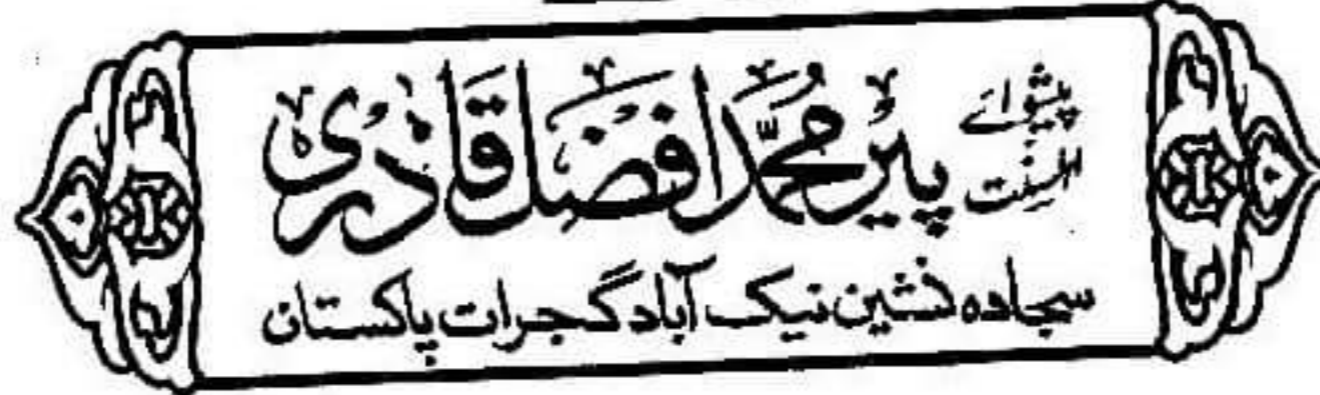 پیشوائے اہلسنت
پیر محمد افضل قادری
سجادہ نشین نیک آباد گجرات پاکستان